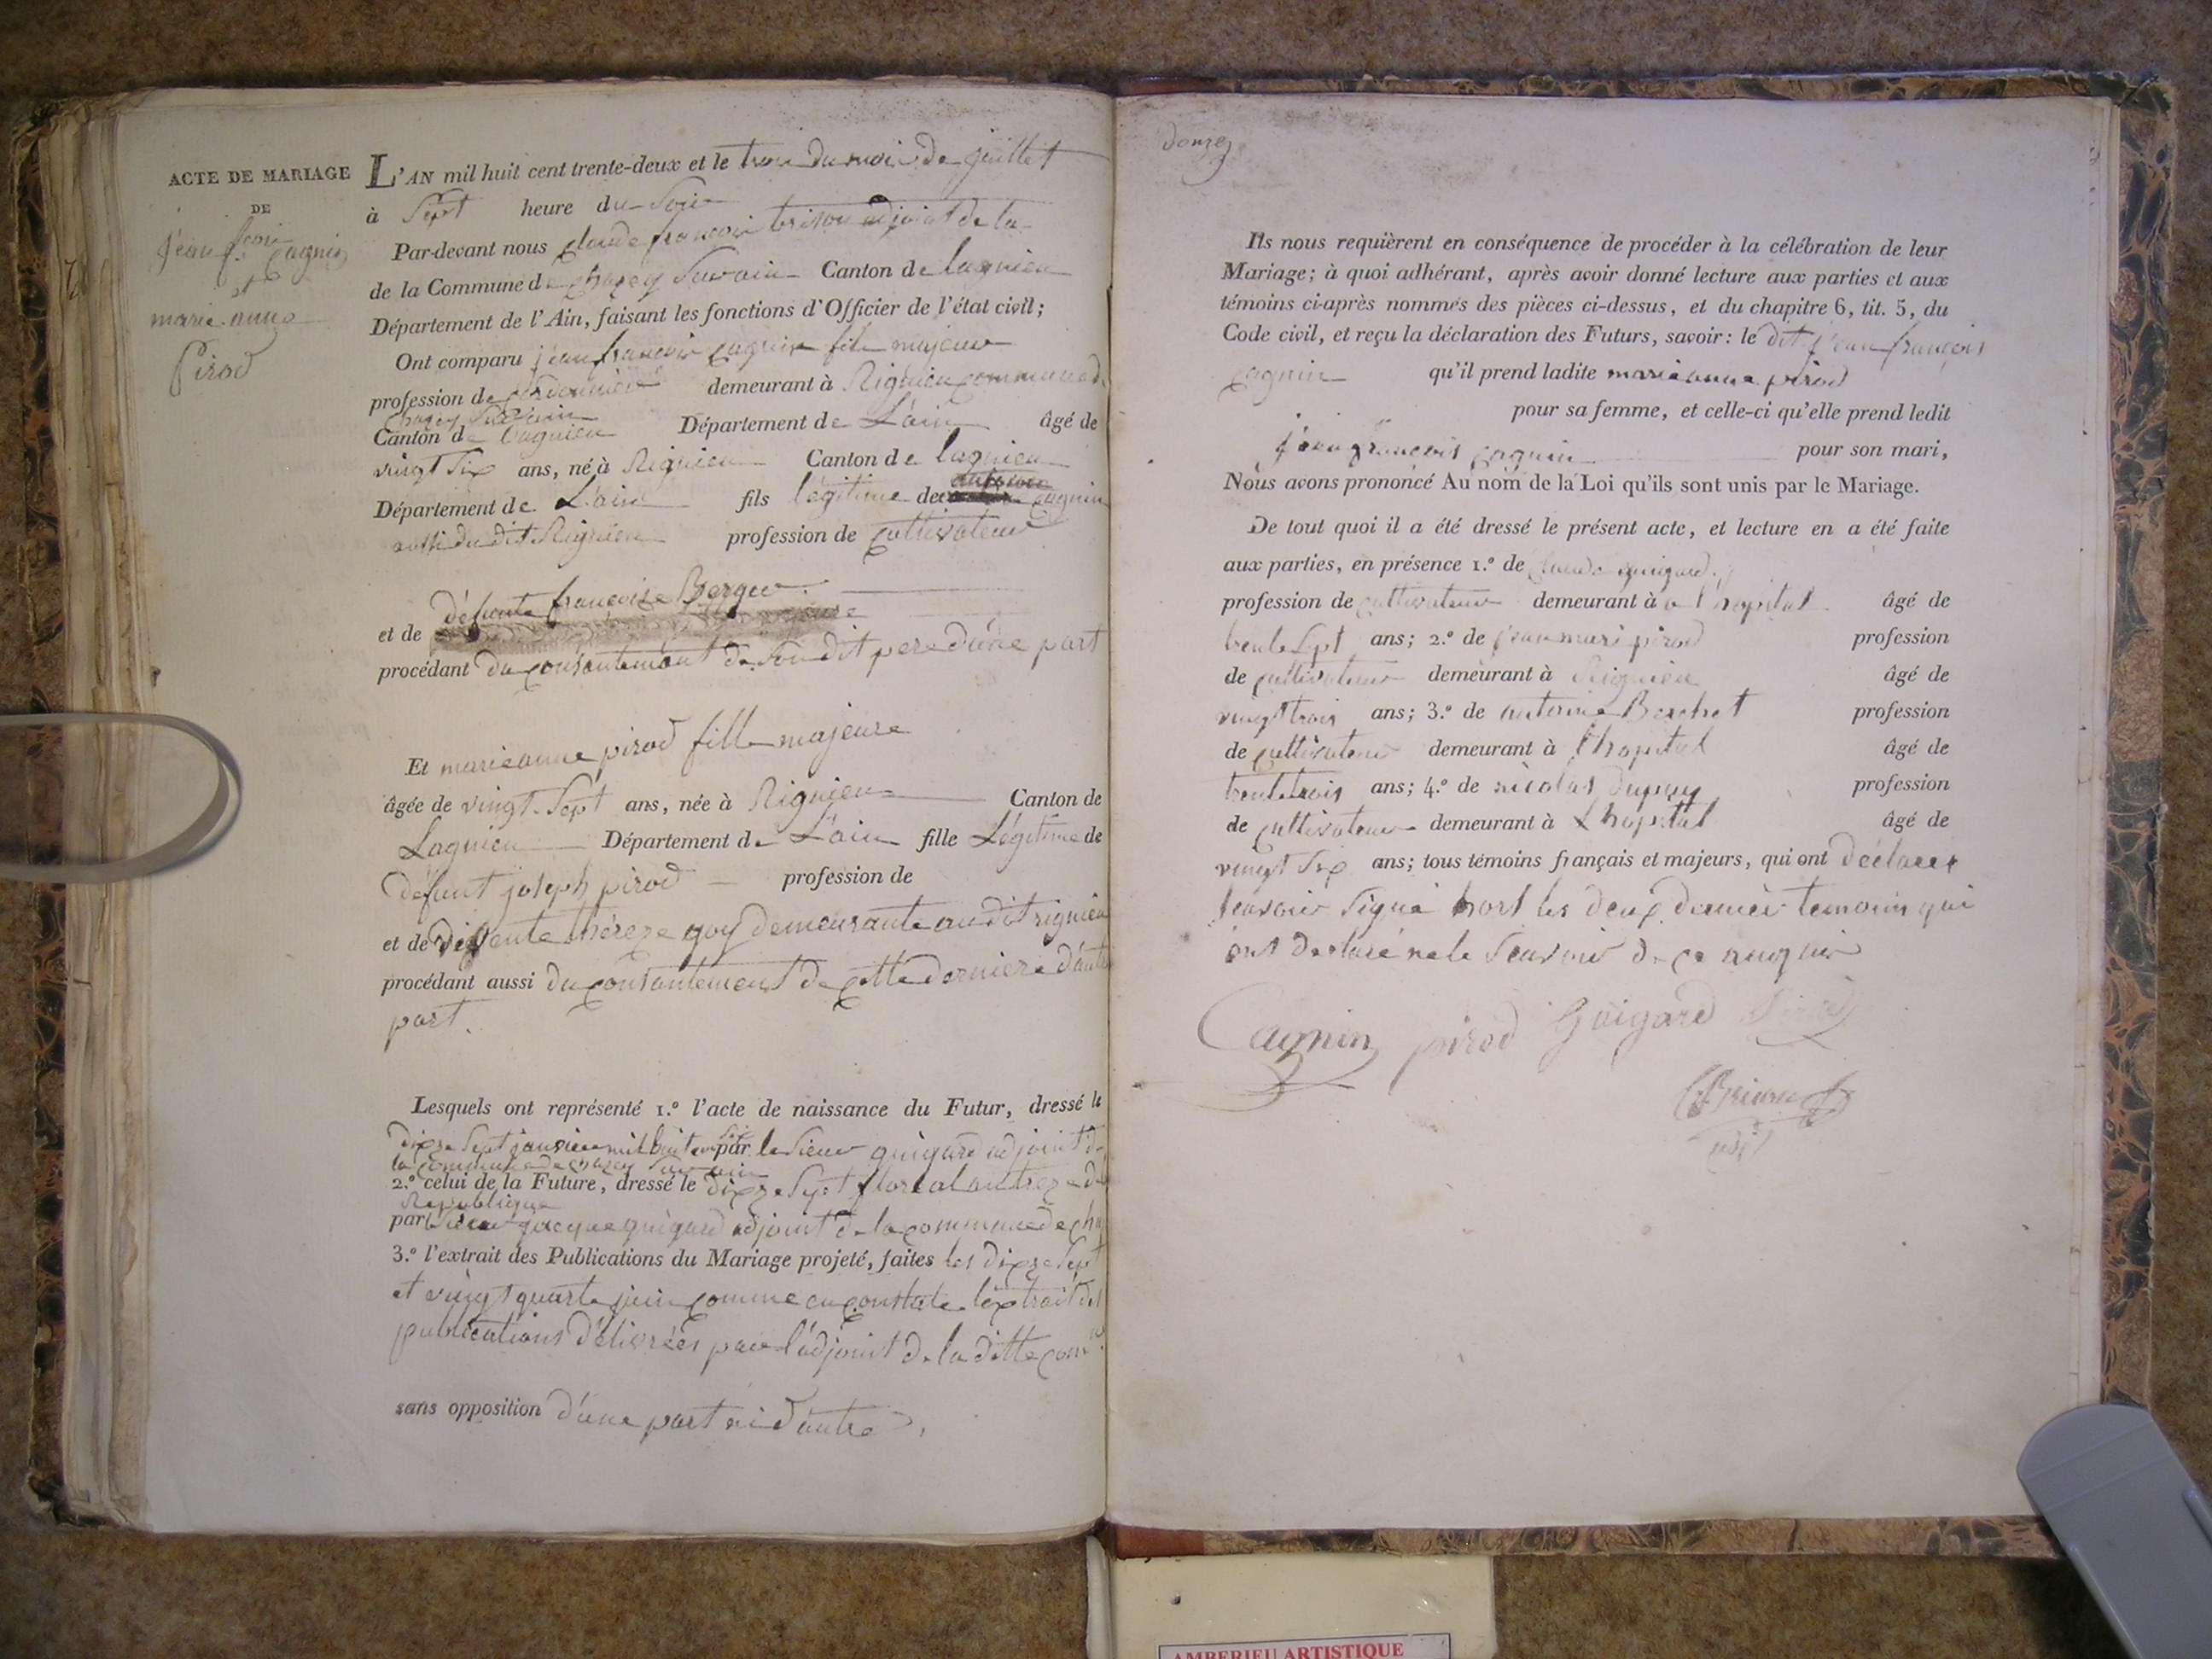 ACTE DE MARIAGE
DE
jean fcois
Cagnin
et
marie anne
Pirod
L'AN mil huit cent trente-deux et le trois du mois de juillet
à Sept heure du Soir
Par-devant nous Claude françois adjoint de la
de la Commune de Chazey Canton de lagnieu
Département de l'Ain, faisant les fonctions d'Officier de l'état civil;
Ont comparu jean françois Cagnin fils majeur
profession de demeurant à Rignieu commune de
Chazey
Canton de Lagnieu Département de L'ain âgé de
vingt Six ans, né à Rignieu Canton de lagnieu
Département de L'ain fils légitime de antoine Cagnin
aussi du dit Rignieu profession de cultivateur
défunte françoise Berger
et de
procédant du consantement de Son dit pere d'une part
Et marieanne pirod fille majeure
âgée de vingt-Sept ans, née à Rignieu Canton de
Lagnieu Département de L'ain fille Légitime de
Défunt joseph pirod profession de
et de vivente thérèze goy demeurante au dit rignieu
procédant aussi du consantement de cette derniere d'autre
part.
Lesquels ont représenté 1.º l'acte de naissance du Futur, dressé le
dixze Sept janvier mil huit cent Six par le Sieur guigard adjoint de
la commune de chazey
2.º celui de la Future, dressé le dixze Sept floréal an treze de
Republique
par Sieur jacque guigard adjoint de la commune de cha
3.º l'extrait des Publications du Mariage projeté, faites les dixze Sept
et vingt quatre juin comme en constate l'extrait des
publications délivrées par l'adjoint de la ditte com
sans opposition d'une part ni d'autre.
donzez
Ils nous requièrent en conséquence de procéder à la célébration de leur
Mariage; à quoi adhérant, après avoir donné lecture aux parties et aux
témoins ci-après nommés des pièces ci-dessus, et du chapitre 6, tit. 5, du
Code civil, et reçu la déclaration des Futurs, savoir: le dit jean françois
Cagnin qu'il prend ladite marieanne pirod
pour sa femme, et celle-ci qu'elle prend ledit
jean françois Cagnin pour son mari,
Nous avons prononcé Au nom de la Loi qu'ils sont unis par le Mariage.
De tout quoi il a été dressé le présent acte, et lecture en a été faite
aux parties, en présence 1.º de Claude guigard
profession de cultivateur demeurant à a l'hopital âgé de
trente Sept ans; 2.º de jean mari pirod profession
de cultivateur demeurant à Rignieu âgé de
vingt trois ans; 3.º de antoine Berchet profession
de cultivateur demeurant à l'hopital âgé de
trente trois ans; 4.º de nicolas dupuy profession
de cultivateur demeurant à L'hopital âgé de
vingt Six ans; tous témoins français et majeurs, qui ont déclarer
Scavoir Signé hort les deux dernier temoins qui
ont declaré ne le Scavoir de ce requis
Cagnin pirod Guigard
adjt
AMBERIEU ARTISTIQUE